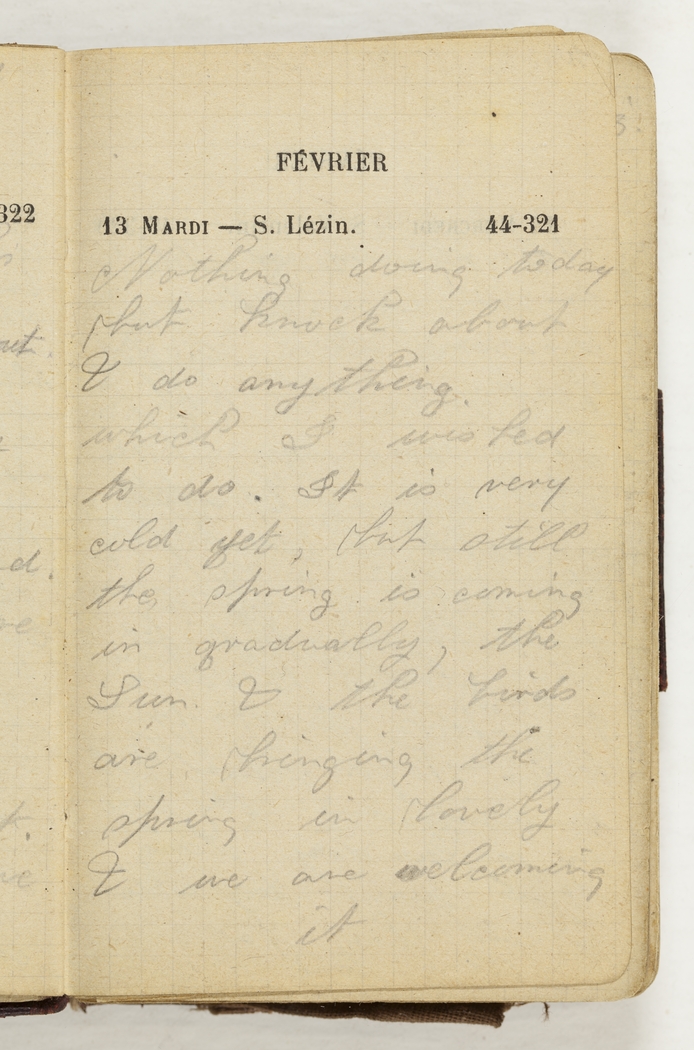 FÉVRIER
322
13 MARDI — S. Lézin. 44-321
Nothing doing today
but knock about
& do anything
which I wished
to do. It is very
cold yet, but still
the spring is coming
in gradually, the
Sun & the birds
are bringing the
spring in lovely
& we are welcoming
it